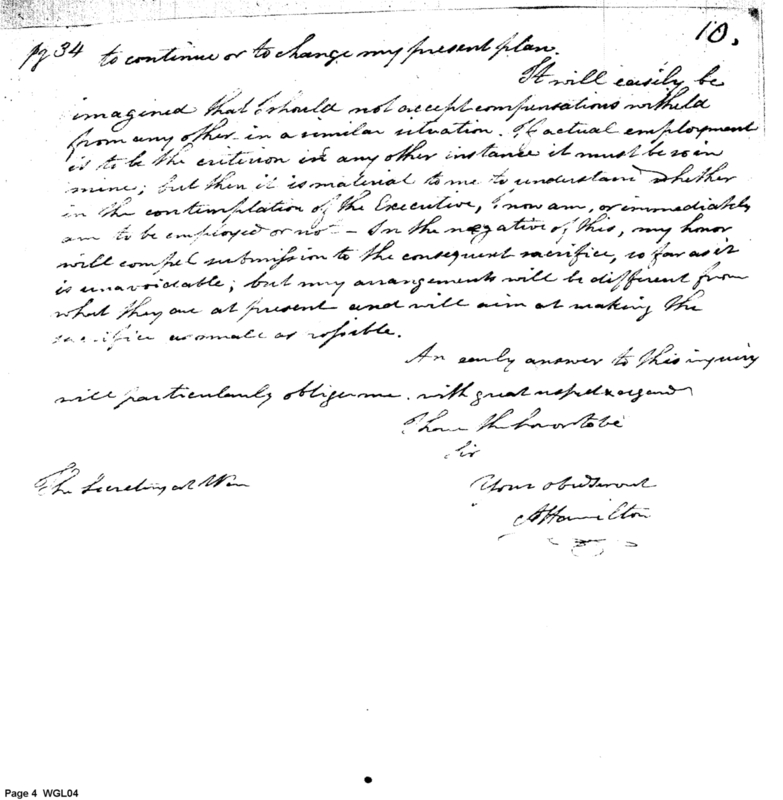 pg 34
10.
to continue or to change my present plan.
It will easily be
imagined that I should not accept compensations witheld
from any other in a similar situation. If actual employment
is to be the criterion in any other instance it must be so in
mine; but then it is material to me to understand whether
in the contemplation of the Executive, I now am, or immediately
am to be employed or not - In the negative of this, my honor
will compel submission to the consequent sacrifice, so far as it
is unavoidable; but my arrangements will be different from
what they are at present and will aim at making the
sacrifice as small as possible.
An early answer to this inquiry
will particularly oblige me. with great respect & regard
I have the honor to be
Sir
Your obed servant
AHamilton
The Secretary at War
Page 4 WGL04